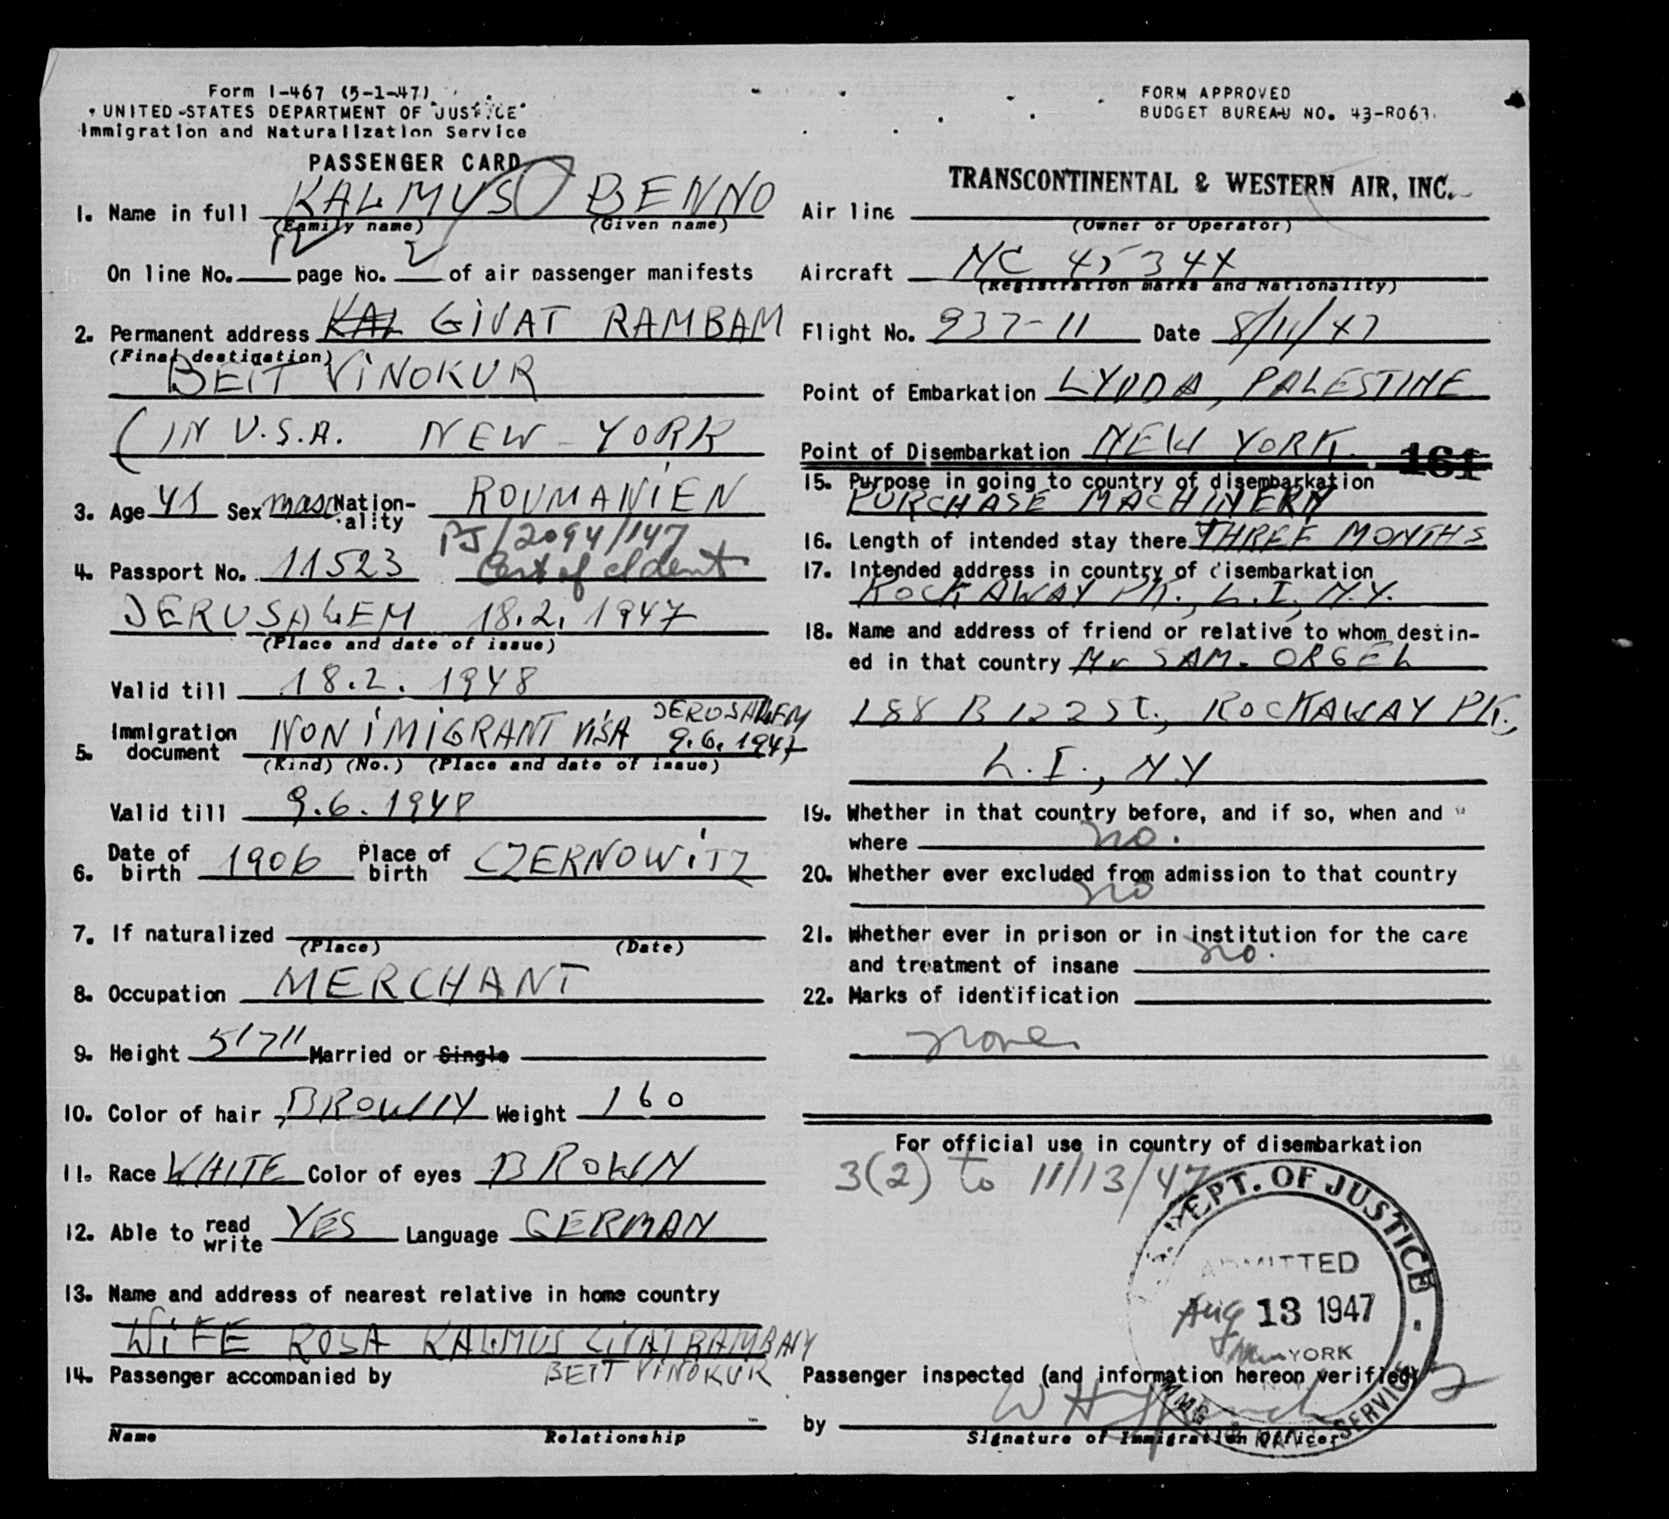 Form I-467 (5-1-47)
UNITED STATES DEPARTMENT OF JUSTICE
Immigration and Naturalization Service
PASSENGER CARD
1. Name in full KALMUS BENNO
(Family name) (Given name)
On line No. page No. of air passenger manifests
2. Permanent address KAL GIVAT RAMBAM
(Final destination)
BEIT VINOKUR
(IN U.S.A. NEW-YORK
3. Age 41 Sex masc Nation-ality ROUMANIEN
PJ/2094/147
4. Passport No. 11523 Cert of Ident
JERUSALEM 18.2.1947
(Place and date of issue)
Valid till 18.2.1948
5. Immigration document NON iMiGRANT ViSA JERUSALEM 9.6.1947
(Kind) (No.) (Place and date of issue)
Valid till 9.6.1948
6. Date of birth 1906 Place of birth CZERNOWITZ
7. If naturalized
(Place) (Date)
8. Occupation MERCHANT
9. Height 5'7" Married or Single
10. Color of hair BROWN Weight 160
11. Race WHITE Color of eyes BROWN
12. Able to read write YES Language GERMAN
13. Name and address of nearest relative in home country
WIFE ROSA KALMUS GIVAT RAMBAM
BEIT VINOKUR
14. Passenger accompanied by
Name Relationship
FORM APPROVED
BUDGET BUREAU NO. 43-R063.
TRANSCONTINENTAL & WESTERN AIR, INC.
Air line
(Owner or Operator)
Aircraft NC 45344
(Registration marks and Nationality)
Flight No. 937-11 Date 8/11/47
Point of Embarkation LYDDA, PALESTINE
Point of Disembarkation NEW YORK. 161
15. Purpose in going to country of disembarkation
PURCHASE MACHINERY
16. Length of intended stay there THREE MONTHS
17. Intended address in country of disembarkation
ROCKAWAY PK., L.I., N.Y.
18. Name and address of friend or relative to whom destin-
ed in that country Mr SAM. ORGEL
188 B 122 St., ROCKAWAY PK.,
L.I., N.Y
19. Whether in that country before, and if so, when and
where no.
20. Whether ever excluded from admission to that country
no
21. Whether ever in prison or in institution for the care
and treatment of insane no.
22. Marks of identification
none
For official use in country of disembarkation
3(2) to 11/13/47
DEPT. OF JUSTICE
ADMITTED
Aug 13 1947
YORK
IMMG. & NAT. SERVICE
Passenger inspected (and information hereon verified)
by
Signature of Immigration Officer